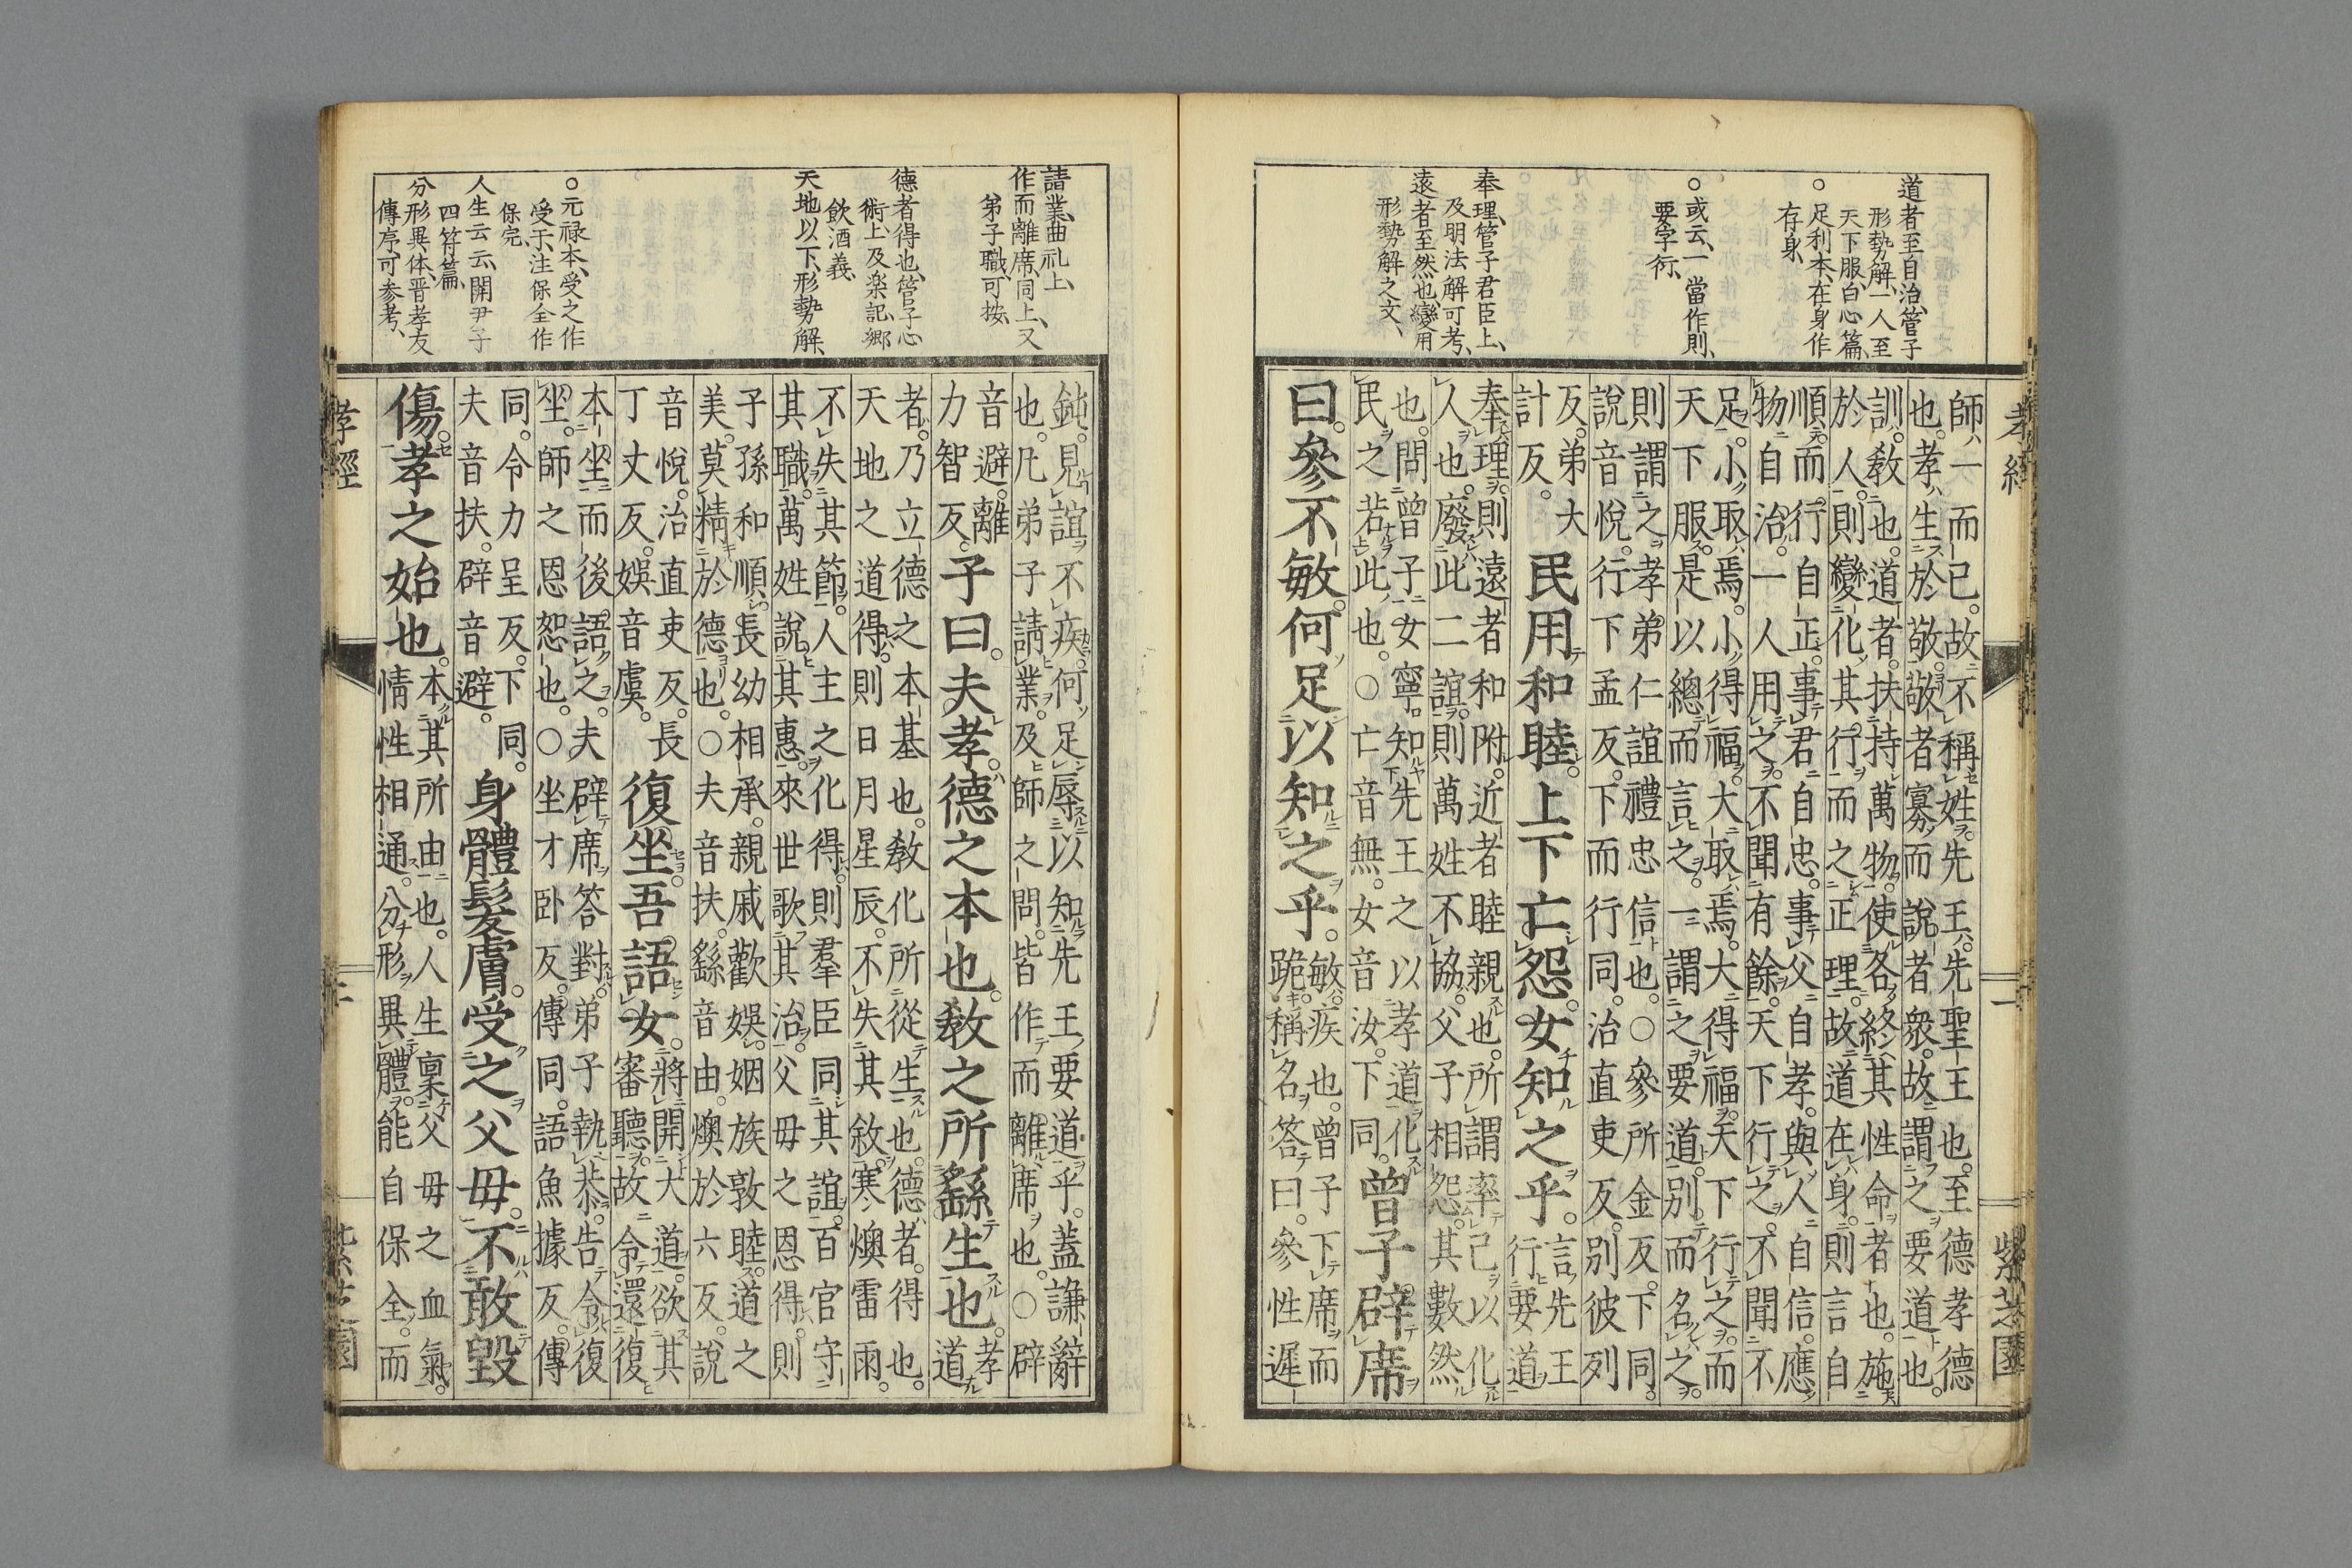 孝經
紫芝園
道者至自治、管子
形勢解、一人至
天下服、白心篇、
○足利本、在身作
存身、
○或云、一當作則、
要字衍、
奉理、管子君臣上、
及明法解可考、
遠者至然也、變用
形勢解之文、
師一而已。故不稱姓。先王。先聖王也。至德孝德
也。孝生於敬。敬者寡而說者衆。故謂之要道也。
訓敎也。道者。扶持萬物。使各終其性命者也。施
於人。則變化其行而之正理。故道在身。則言自
順而行自正。事君自忠。事父自孝。與人自信。應
物自治。一人用之。不聞有餘。天下行之。不聞不
足。小取焉。小得福。大取焉。大得福。天下行之。而
天下服。是以總而言之。一謂之要道。別而名之。
則謂之孝弟仁誼禮忠信也。○參所金反。下同。
說音悅。行下孟反。下而行同。治直吏反。別彼列
反。弟大
計反。
民用和睦。上下亡怨。女知之乎。
言先王
行要道
奉理。則遠者和附。近者睦親也。所謂率己以化
人也。廢此二誼。則萬姓不協。父子相怨。其數然
也。問曾子。女寧知先王之以孝道化
民之若此也。○亡音無。女音汝。下同。
曾子辟席
曰。參不敏。何足以知之乎。
敏疾也。曾子下席而
跪。稱名答曰。參性遲
請業、曲礼上、
作而離席、同上、又
弟子職、可按、
德者得也、管子心
術上及楽記、郷
飲酒義、
天地以下、形勢解、
○元禄本、受之作
受于、注保全作
保完、
人生云云、關尹子
四符篇、
分形異体、晋孝友
傳序、可参考、
鈍。見誼不疾。何足辱以知先王要道乎。蓋謙辭
也。凡弟子請業。及師之問。皆作而離席也。○辟
音避。離
力智反。
子曰。夫孝。德之本也。敎之所繇生也。
孝
道
者。乃立德之本基也。敎化所從生也。德者。得也。
天地之道得。則日月星辰。不失其敘。寒燠雷雨。
不失其節。人主之化得。則羣臣同其誼。百官守
其職。萬姓說其惠。來世歌其治。父母之恩得。則
子孫和順。長幼相承。親戚歡娛。姻族敦睦。道之
美。莫精於德也。○夫音扶。繇音由。燠於六反。說
音悅。治直吏反。長
丁丈反。娛音虞。
復坐。吾語女。
將開大道。欲其
審聽。故令還復
本坐而後語之。夫辟席答對。弟子執恭。告令復
坐。師之恩恕也。○坐才臥反。傳同。語魚據反。傳
同。令力呈反。下同。
夫音扶。辟音避。
身體髮膚。受之父母。不敢毀
傷。孝之始也。
本其所由也。人生稟父母之血氣。
情性相通。分形異體。能自保全。而
孝經